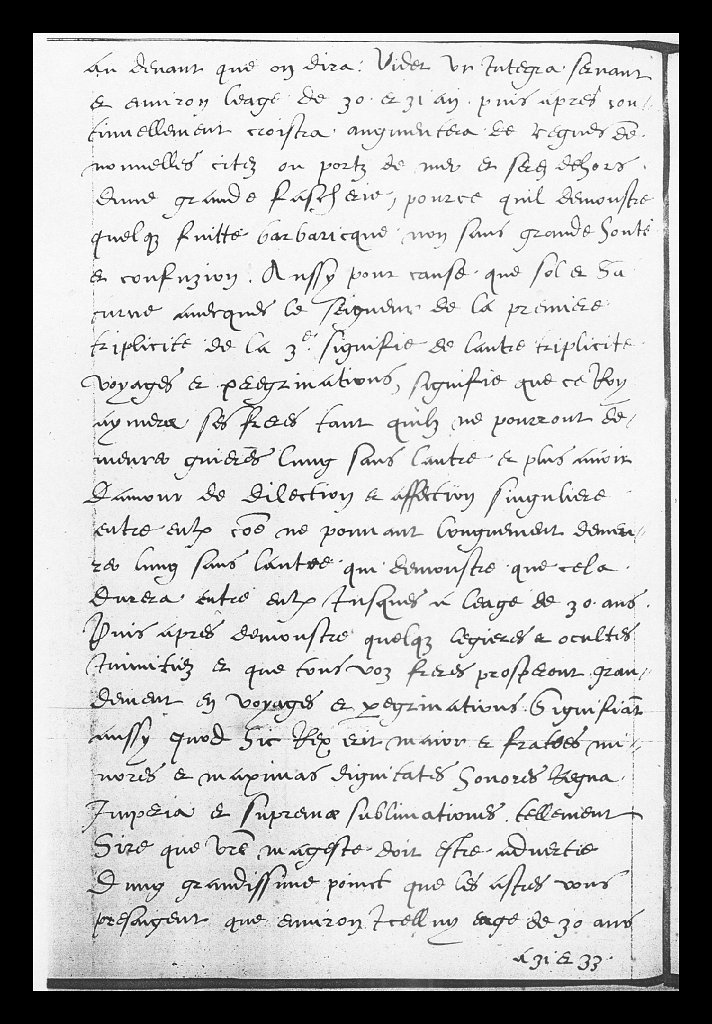 au devant que on dira: Videt vr Integra servant
et environ leage de 30 et 31 an. puis apres con-
tinuellement croistra augmentera de regnes de
nouuelles citez ou portz de mer et sera dehors
dune grande fascherie, pource quil demonstre
quelqz fuitte barbaricque non sans grande honte
et confuzion. Aussy pour cause que sol et Sa
turne auecques le seigneur de la premiere
triplicite de la 3e. signifie de lautre triplicite
voyages et peregrinations, signifie que ce Roy
aymera ses freres tant quilz ne pourront de-
meurer guieres lung sans lautre et plus auoir
damour de dilection et affection singuliere
entre eulx coe ne pouuant longuement demeu-
rer lung sans lautre qui demonstre que cela
durera entre eulx Jusques a leage de 30 ans.
Puis apres demonstre quelqz legieres et ocultes
Inimitiez et que tous voz freres prosperont gran-
dement en voyages et peregrinations. Signifiat
aussy quod hic Rex erit maior et fratres mi-
nores et maximas dignitates honores Regna
Imperia et supremas sublimationes. tellement
Sire que vre mageste doit estre aduertie
dung grandissime poinct que les astres vous
presaigent que environ Icelluy eage de 30 ans
a 31 et 33.